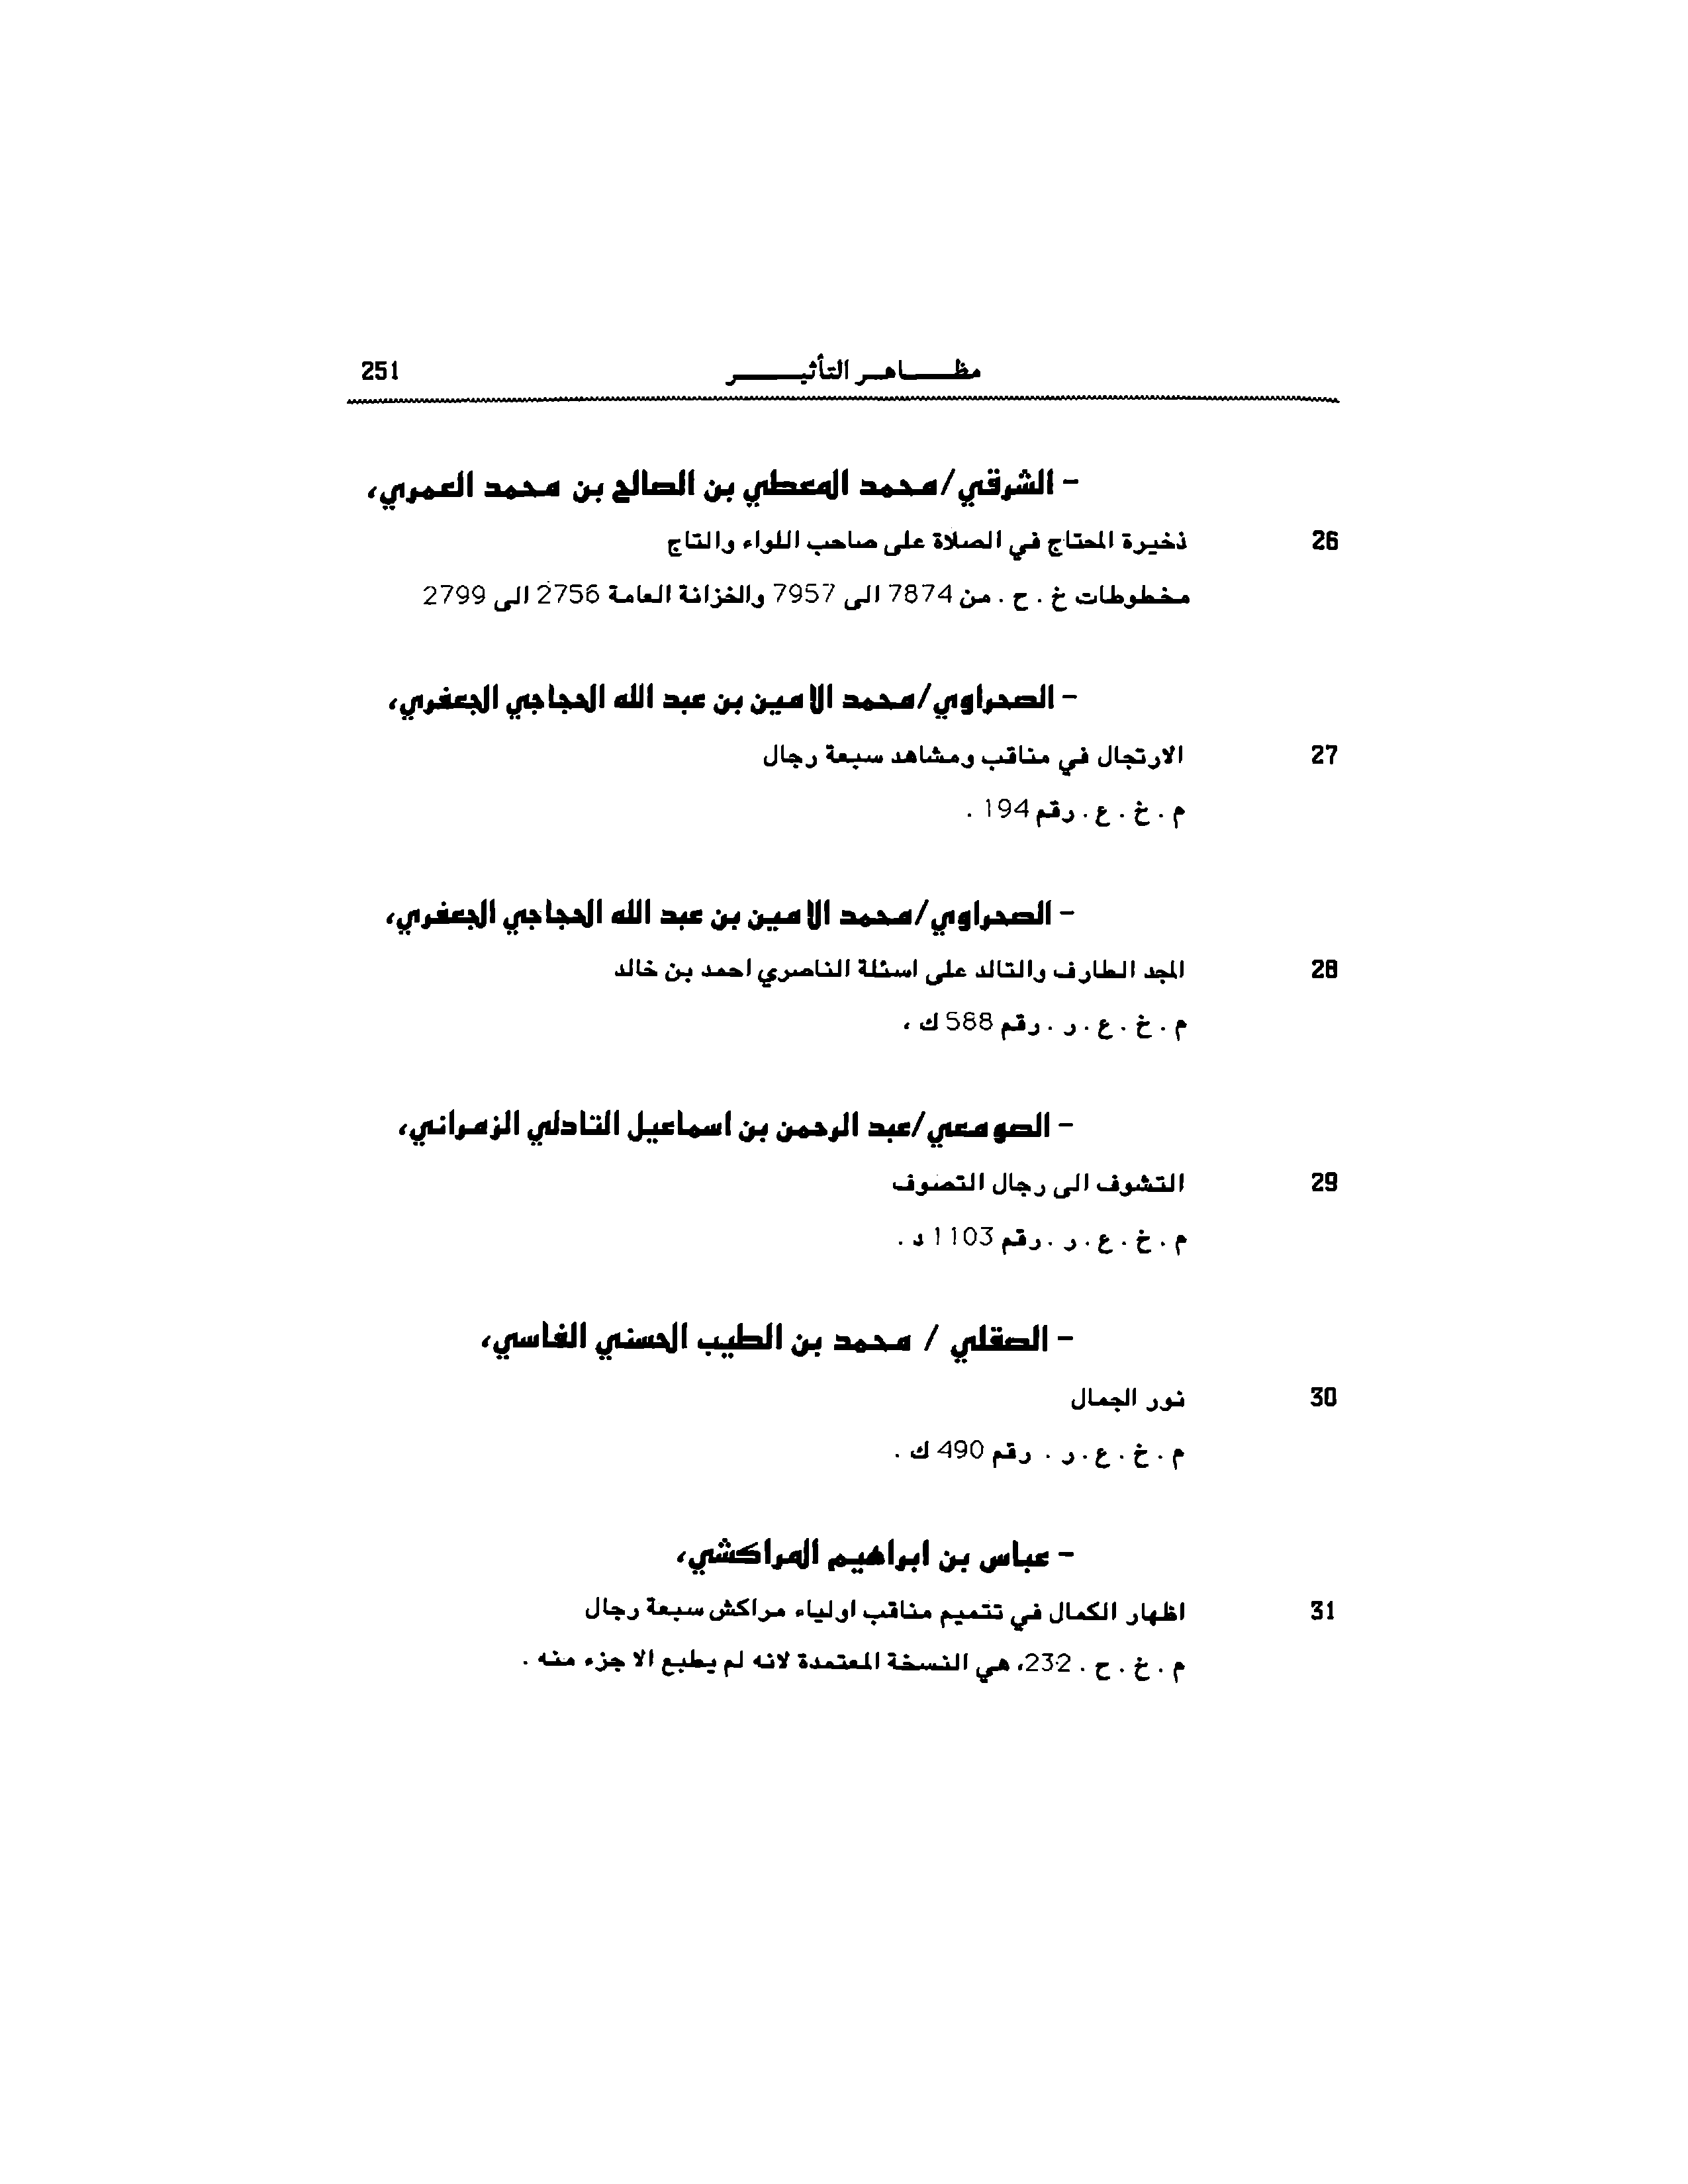 مظاهر التأثير 251
- الشرقي/محمد المعطي بن الصالح بن محمد العمري،
26 ذخيرة المحتاج في الصلاة على صاحب اللواء والتاج
مخطوطات خ . ح . من 7874 الى 7957 والخزانة العامة 2756 الى 2799
- الصحراوي/محمد الامين بن عبد الله الحجاجي الجعفري،
27 الارتجال في مناقب ومشاهد سبعة رجال
م . خ . ع . رقم 194 .
- الصحراوي/محمد الامين بن عبد الله الحجاجي الجعفري،
28 المجد الطارف والتالد على اسئلة الناصري احمد بن خالد
م . خ . ع . ر . رقم 588 ك ،
- الصومعي/عبد الرحمن بن اسماعيل التادلي الزمراني،
29 التشوف الى رجال التصوف
م . خ . ع . ر . رقم 1103 د .
- الصقلي / محمد بن الطيب الحسني الفاسي،
30 نور الجمال
م . خ . ع . ر . رقم 490 ك .
- عباس بن ابراهيم المراكشي،
31 اظهار الكمال في تتميم مناقب اولياء مراكش سبعة رجال
م . خ . ح . 232، هي النسخة المعتمدة لانه لم يطبع الا جزء منه .